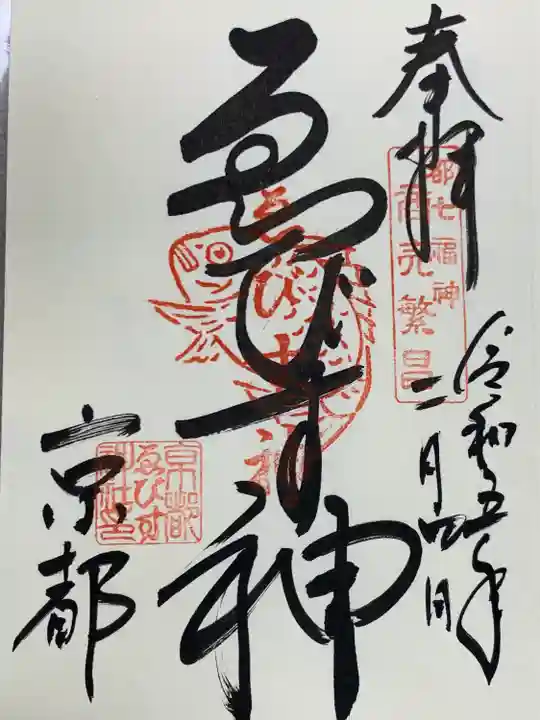 奉拝
都七福神
商売繁昌
令和五年
二月四日
ゑびす神
ゑびす神
京都
京都
ゑびす
神社印